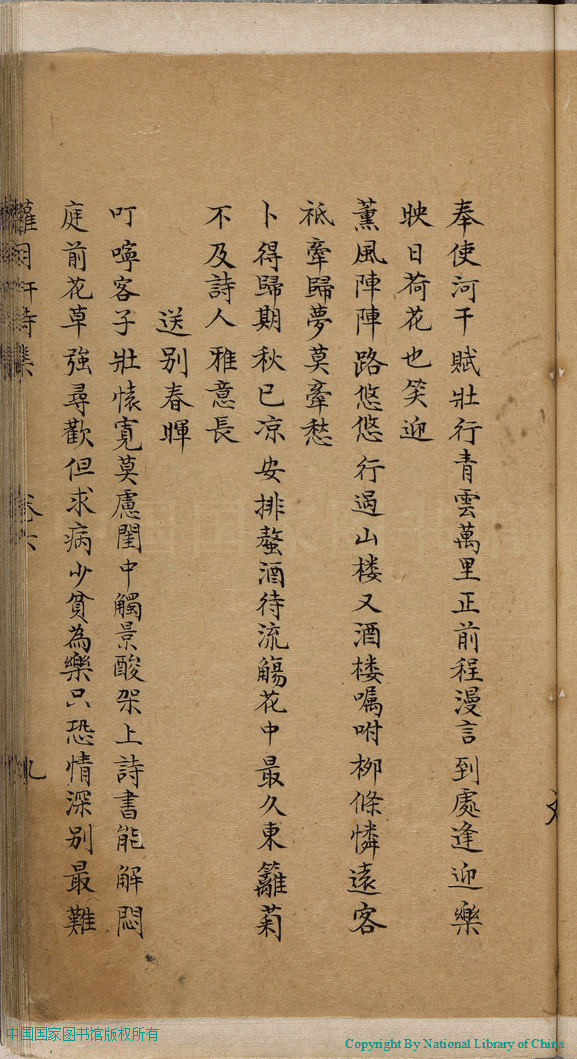 奉使河干賦壯行青雲萬里正前程漫言到處逢迎樂
映日荷花也笑迎
薰風陣陣路悠悠行過山楼又酒楼嘱咐柳條憐遠客
祗牽歸夢莫牽愁
卜得歸期秋已凉安排螯酒待流觴花中最久東籬菊
不及詩人雅意長
送别春暉
叮嚀客子壯懷寛莫慮閨中觸景酸架上詩書能解悶
庭前花草強尋歡但求病少貧為樂只恐情深别最難
卷六
九
中国国家图书馆版权所有
Copyright By National Library of China